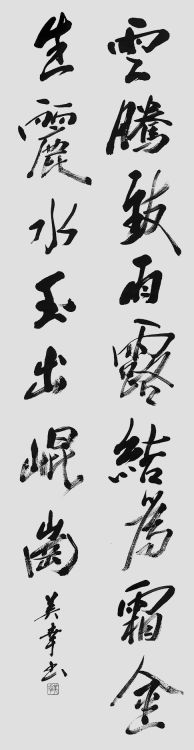 雲騰致雨露結為霜金
生麗水玉出崐崗
美幸书